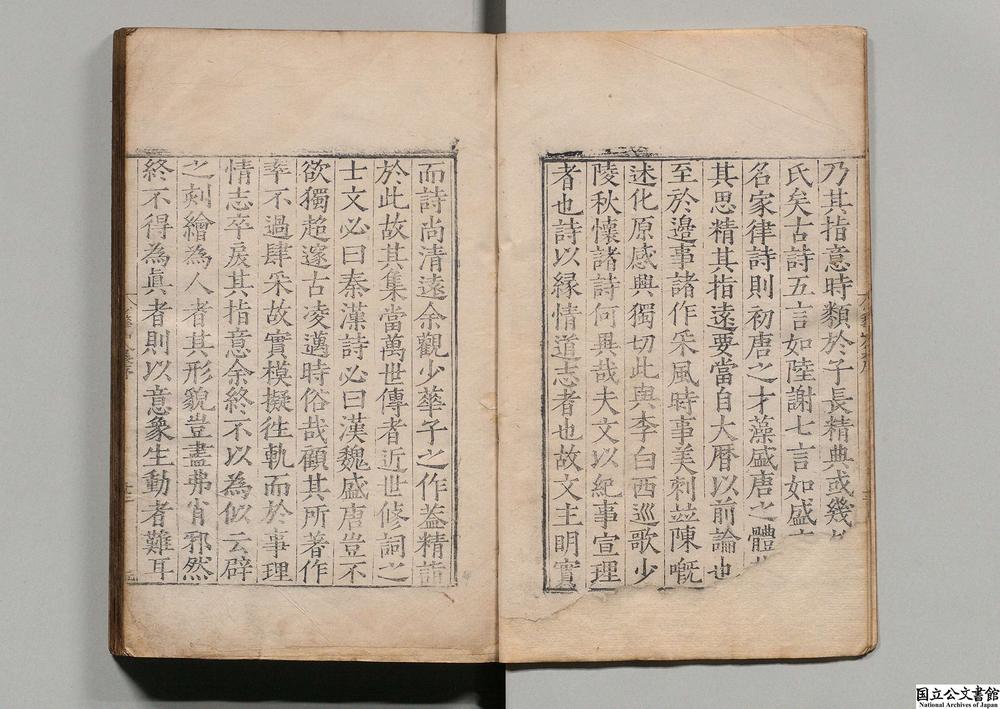 乃其指意時類於子長精典或幾
氏矣古詩五言如陸謝七言如盛
名家律詩則初唐之才藻盛唐之體
其思精其指遠要當自大曆以前論也
至於邊事諸作采風時事美刺並陳嘅
述化原感興獨切此與李白西巡歌少
陵秋懷諸詩何異哉夫文以紀事宣理
者也詩以緣情道志者也故文主明實
而詩尚清遠余觀少華子之作葢精詣
於此故其集當萬世傳者近世修詞之
士文必曰秦漢詩必曰漢魏盛唐豈不
欲獨超邃古凌邁時俗哉顧其所著作
率不過肆采故實模擬徃軌而於事理
情志卒戾其指意余終不以為似云辟
之刻繪為人者其形貌豈盡弗肖邪然
終不得為眞者則以意象生動者難耳
国立公文書館
National Archives of Japan